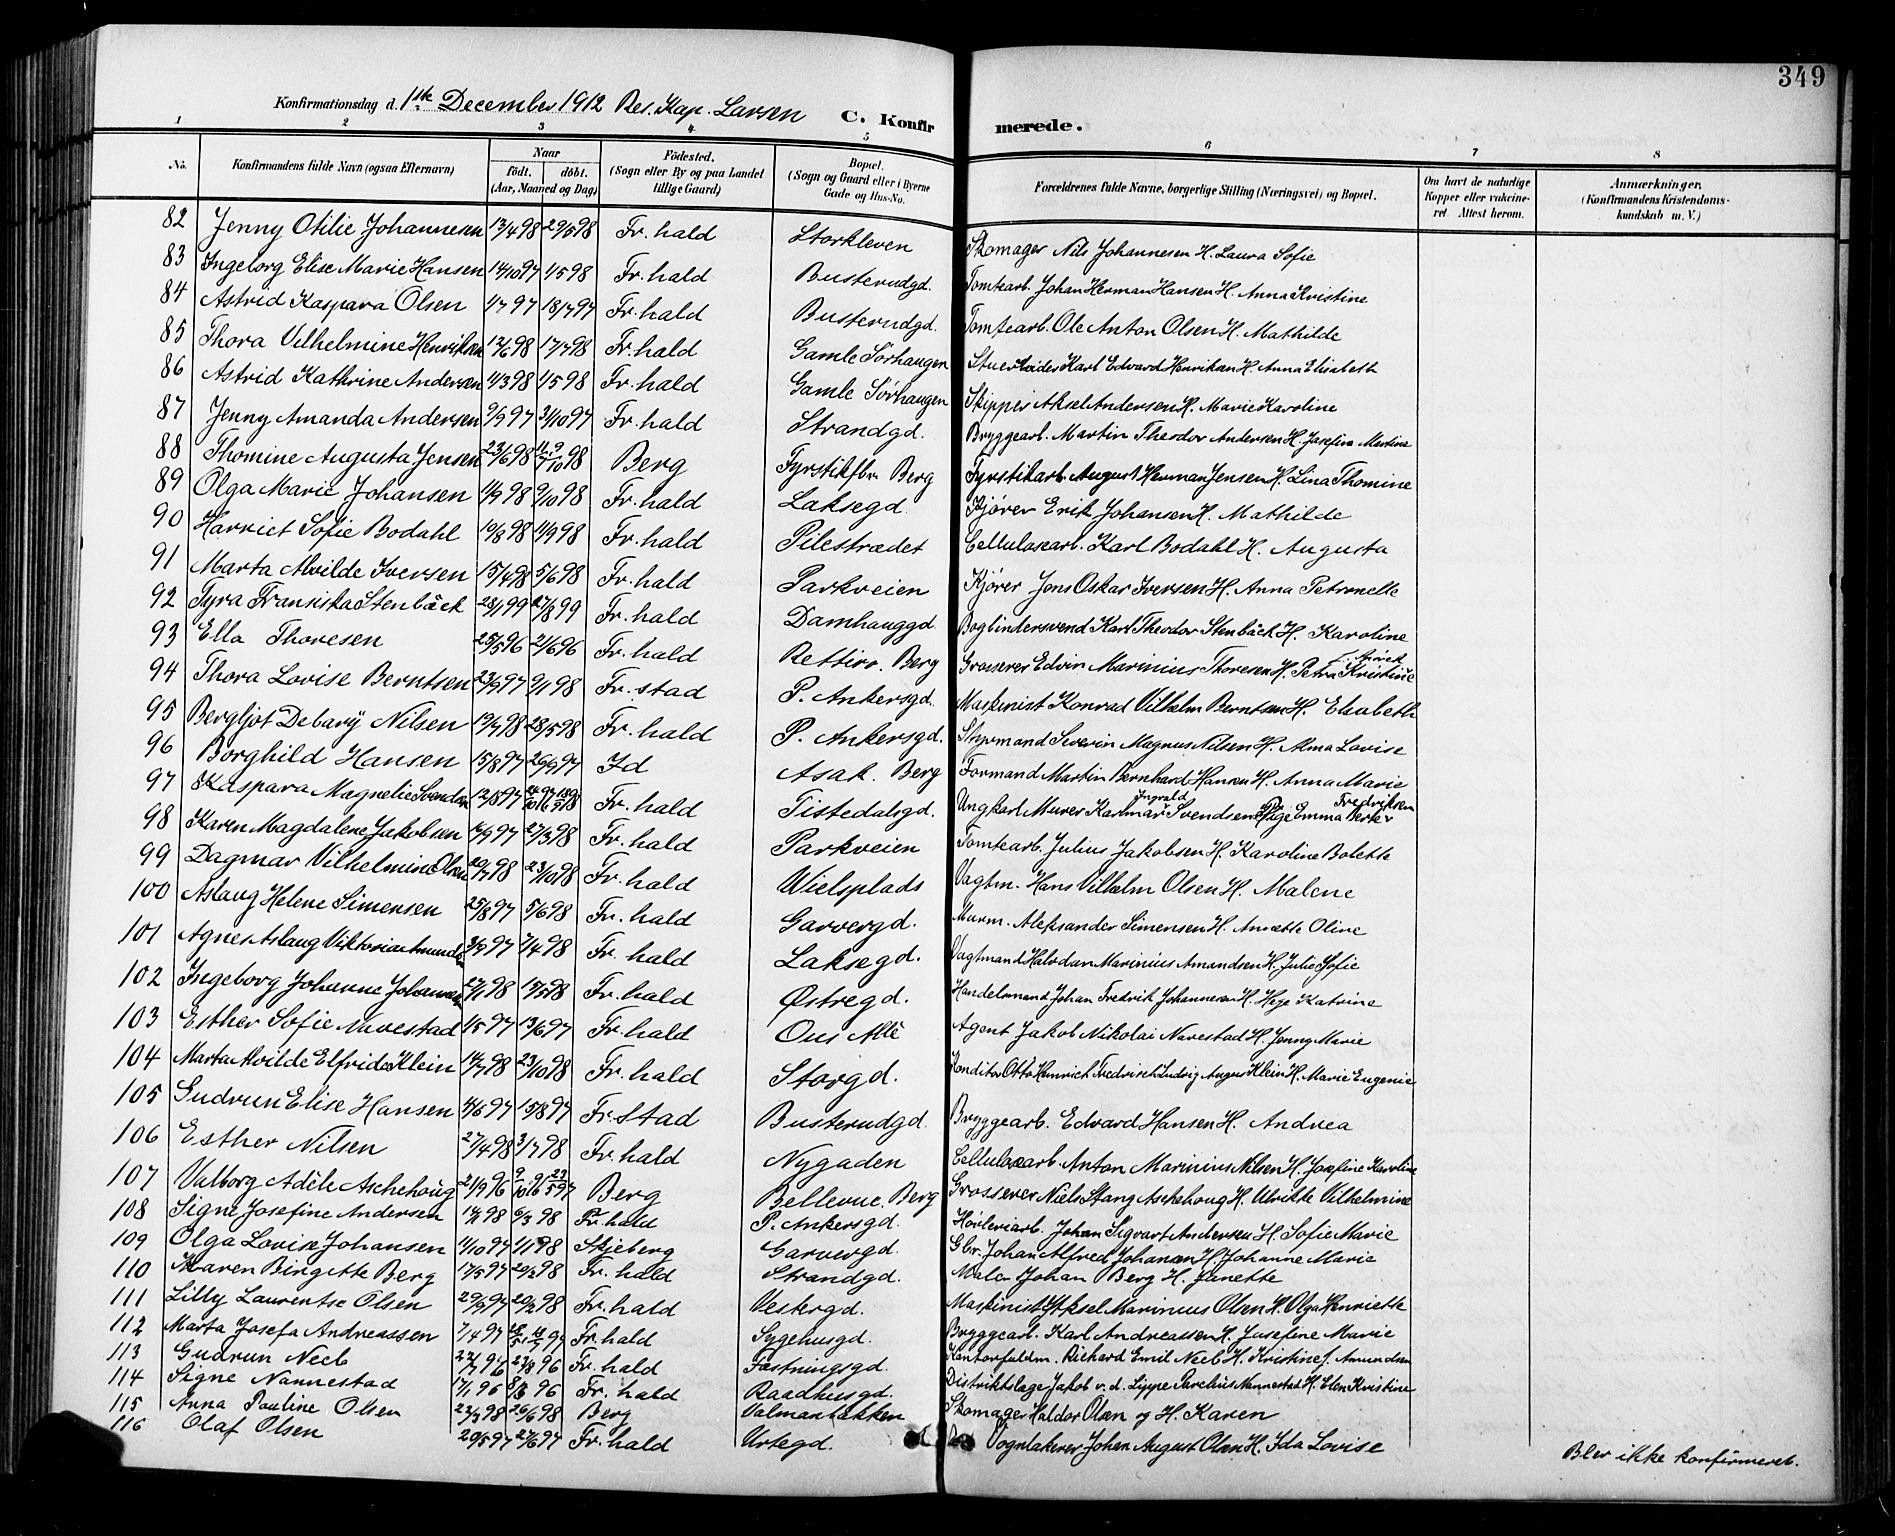 349
Konfirmationsdag d. 1ste December 1912 Res. Kap. Larsen
C. Konfirmerede.
1 2 3 4 5 6 7 8
No. | Konfirmandens fulde Navn (ogsaa Efternavn) | Naar födt. döbt. (Aar, Maaned og Dag) | Födested. (Sogn eller By og paa Landet tillige Gaard) | Bopæl. (Sogn og Gaard eller i Byerne Gade og Hus-No. | Forældrenes fulde Navne, borgerlige Stilling (Næringsvei) og Bopæl. | Om havt de naturlige Kopper eller vakcineret Attest herom. | Anmærkninger. (Konfirmandens Kristendomskundskab m. V.)
82 Jenny Otilie Johannesen 13/4 98 29/5 98 Fr.hald Storkleven Skomager Nils Johannesen H. Laura Sofie
83 Ingeborg Elise Marie Hansen 14/10 97 1/5 98 Fr.hald Busterudgd. Tomtearb. Johan Herman Hansen H. Anna Kristine
84 Astrid Kaspara Olsen 1/7 97 18/7 97 Fr.hald Busterudgd. Tomtearb. Ole Anton Olsen H. Mathilde
85 Thora Vilhelmine Henriksen 12/6 98 17/7 98 Fr.hald Gamle Sørhaugen Karl Edvard Henriksen H. Anna Elisabeth
86 Astrid Kathrine Andersen 11/3 98 1/5 98 Fr.hald Gamle Sørhaugen Skipper Aksel Andersen H. Marie Karoline
87 Jenny Amanda Andersen 9/9 97 31/10 97 Fr.hald Strandgd. Bryggearb. Martin Theodor Andersen H. Josefine Martine
88 Thomine Augusta Jensen 23/6 98 98 Berg Fyrstikfbr. Berg Fyrstikarb. August Herman Jensen H. Lina Thomine
89 Olga Marie Johansen 11/9 98 9/10 98 Fr.hald Laksegd. Kjører Erik Johansen H. Mathilde
90 Harriet Sofie Bodahl 10/8 98 11/9 98 Fr.hald Pilestrædet Cellulosearb. Karl Bodahl H. Augusta
91 Marta Alvilde Iversen 15/4 98 5/6 98 Fr.hald Parkveien Kjører Jens Oskar Iversen H. Anna Petronelle
92 Tyra Fransiska Stenbäck 28/1 99 27/8 99 Fr.hald Damhauggd Bogbindersvend Karl Theodor Stenbäck H. Karoline
93 Ella Thoresen 25/5 96 21/6 96 Fr.hald Rettiro. Berg Grosserer Edvin Marinius Thoresen H. Petra Kristine
94 Thora Lovise Berntsen 23/9 97 9/1 98 Fr.stad P. Ankersgd. Maskinist Konrad Vilhelm Berntsen H. Elisabeth
95 Bergljot Debarÿ Nilsen 19/4 98 28/5 98 Fr.hald P. Ankersgd. Styrmand Severin Magnus Nilsen H. Alma Lovise
96 Borghild Hansen 15/8 97 26/9 97 Id Asak. Berg Formand Martin Bernhard Hansen H. Anna Marie
97 Kaspara Magnelie Svendsen 12/8 97 Fr.hald Tistedalsgd. Ungkarl Murer Karlmar Ingvald Svendsen Pige Emma Fredriksen
98 Karen Magdalene Jakobsen 16/9 97 27/3 98 Fr.hald Parkveien Tomtearb. Julius Jakobsen H. Karoline Bolette
99 Dagmar Vilhelmine Olsen 20/7 98 23/10 98 Fr.hald Wielsplads Vagtm. Hans Vilhelm Olsen H. Malene
100 Aslaug Helene Simensen 25/8 97 5/6 98 Fr.hald Garvergd. Murm. Aleksander Simensen H. Annette Oline
101 Agnes Aslaug Viktoria Amundsen 3/9 97 7/4 98 Fr.hald Laksegd. Vagtmand Halvdan Marinius Amundsen H. Julie Sofie
102 Ingeborg Johanne Johannesen 27/1 98 17/5 98 Fr.hald Østregd. Handelsmand Johan Fredrik Johannesen H. Hege Katrine
103 Esther Sofie Navestad 1/5 97 13/6 97 Fr.hald Ous Allé Agent Jakob Nikolai Navestad H. Jenny Marie
104 Marta Alvilde Elfrida Klein 14/7 98 23/10 98 Fr.hald Storgd. Konditor Otto Henrich Fredrisch Ludvig August Klein H. Marie Eugenie
105 Gudrun Elise Hansen 4/6 97 15/8 97 Fr.stad Busterudgd. Bryggearb. Edvard Hansen H. Andrea
106 Esther Nilsen 27/4 98 3/7 98 Fr.hald Nygaden Cellulosearb. Anton Marinius Nilsen H. Josefine Karoline
107 Valborg Adèle Aschehoug 21/9 96 Berg Bellevue. Berg Grosserer Niels Stang Aschehoug H. Ulrikke Vilhelmine
108 Signe Josefine Andersen 14/1 98 6/3 98 Fr.hald P. Ankersgd. Høvleriarb. Johan Sigvart Andersen H. Sofie Marie
109 Olga Lovise Johansen 11/10 97 1/1 98 Skjeberg Garvergd. Gbr. Johan Alfred Johansen H. Johanne Marie
110 Maren Birgitte Berg 17/5 97 20/2 98 Fr.hald Strandgd. Maler Johan Berg H. Janette
111 Lilly Laurentse Olsen 29/9 97 20/2 98 Fr.hald Vestergd. Maskinist Aksel Marinius Olsen H. Olga Henriette
112 Marta Josefa Andreassen 7/4 97 97 Fr.hald Sygehusgd. Bryggearb. Karl Andreassen H. Josefine Marie
113 Gudrun Neeb 22/7 96 96 Fr.hald Fæstningsgd. Kontorfuldm. Richard Emil Neeb H. Kristine f. Amundsen
114 Signe Nannestad 17/1 96 8/3 96 Fr.hald Raadhusgd. Distriktslæge Jakob v. d. Lippe Parelius Nannestad H. Elen Kristine
115 Anna Pauline Olsen 22/3 98 26/6 98 Berg Valmanbakken Skomager Haldor Olsen og H. Karen
116 Olaf Olsen 20/5 97 27/6 97 Fr.hald Urtegd. Vognlakerer Johan August Olsen H. Ida Lovise Blev ikke konfirmeret.